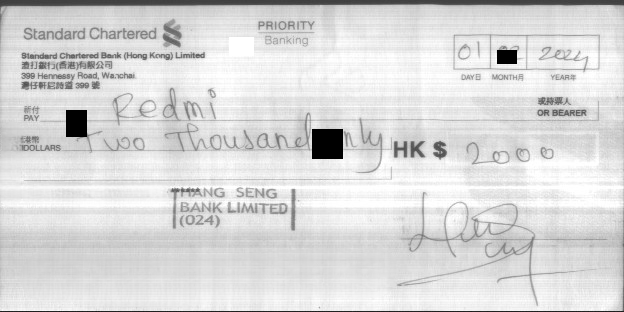 Standard Chartered
PRIORITY
Banking
Standard Chartered Bank (Hong Kong) Limited
渣打銀行(香港)有限公司
399 Hennessy Road, Wanchai
灣仔軒尼詩道 399 號
01 2024
DAY日 MONTH月 YEAR年
祈付
PAY Redmi
或持票人
OR BEARER
港幣
DOLLARS Two Thousand nly HK $ 2000
HANG SENG
BANK LIMITED
(024)